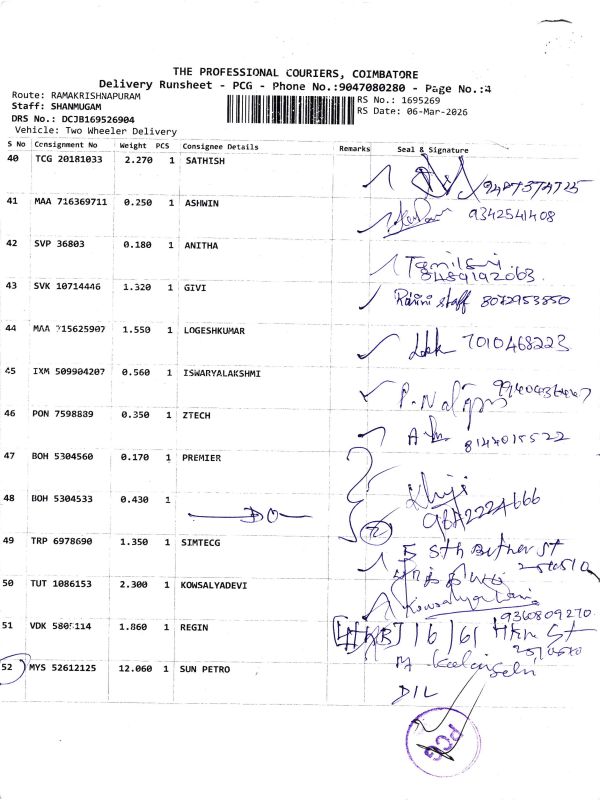 THE PROFESSIONAL COURIERS, COIMBATORE
Delivery Runsheet - PCG - Phone No.:9047080280 - Page No.:4
Route: RAMAKRISHNAPURAM
Staff: SHANMUGAM
DRS No.: DCJB169526904
Vehicle: Two Wheeler Delivery
RS No.: 1695269
RS Date: 06-Mar-2026
S No Consignment No Weight PCS Consignee Details Remarks Seal & Signature
40 TCG 20181033 2.270 1 SATHISH
41 MAA 716369711 0.250 1 ASHWIN 9342541408
42 SVP 36803 0.180 1 ANITHA
8489192063
43 SVK 10714446 1.320 1 GIVI staff 8072953850
44 MAA 715625907 1.550 1 LOGESHKUMAR 7010468223
45 IXM 509904207 0.560 1 ISWARYALAKSHMI
46 PON 7598889 0.350 1 ZTECH 8144015522
47 BOH 5304560 0.170 1 PREMIER
48 BOH 5304533 0.430 1 DO
49 TRP 6978690 1.350 1 SIMTECG
50 TUT 1086153 2.300 1 KOWSALYADEVI
9360809270
51 VDK 1.860 1 REGIN
52 MYS 52612125 12.060 1 SUN PETRO
PCG